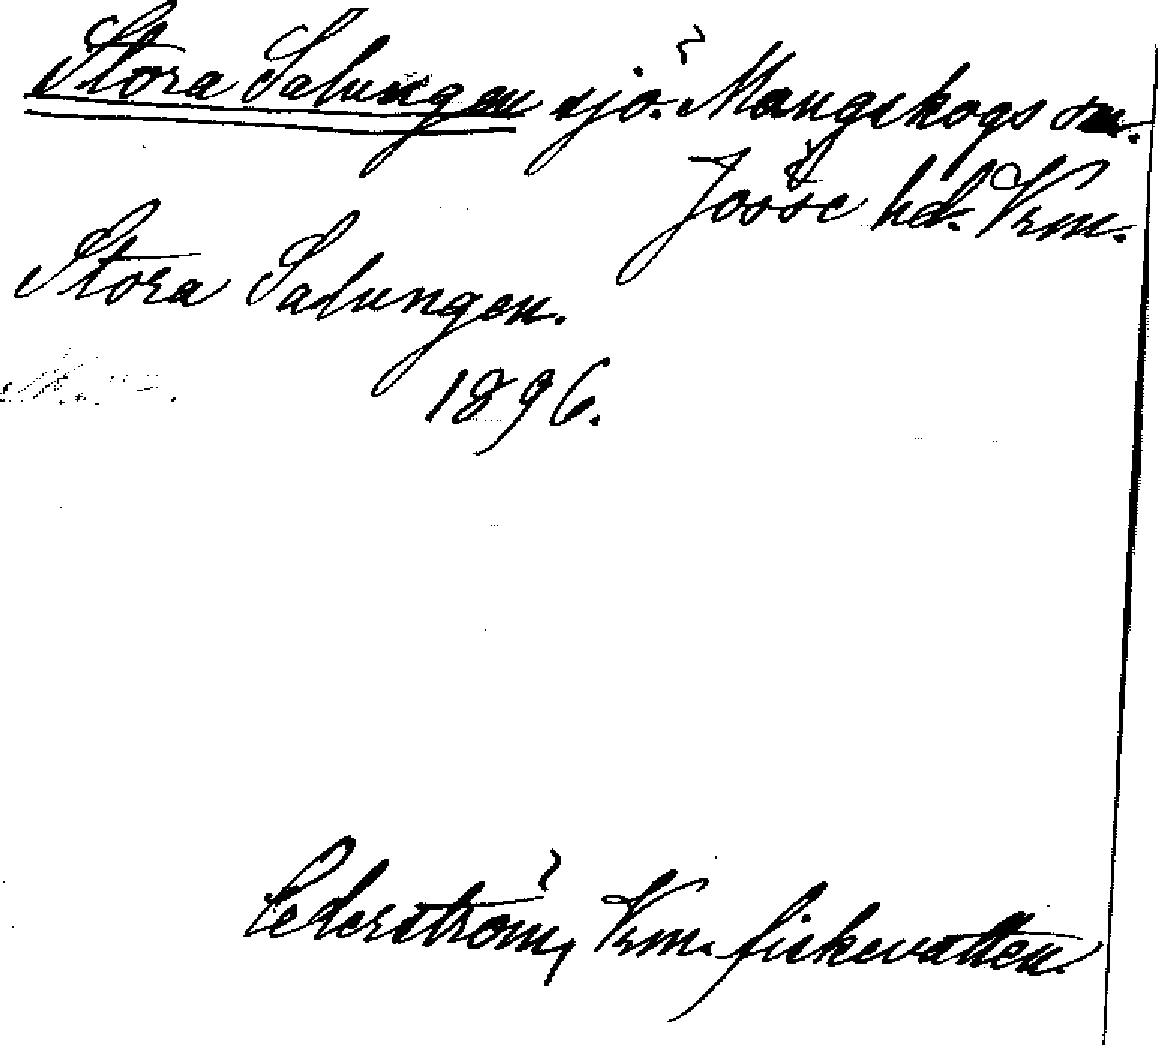 Stora Salungen sjö. Mangskogs sn.
Jösse hd. Vrm.
Stora Salungen.
1896.
Cederström, Vrm. fiskevatten.